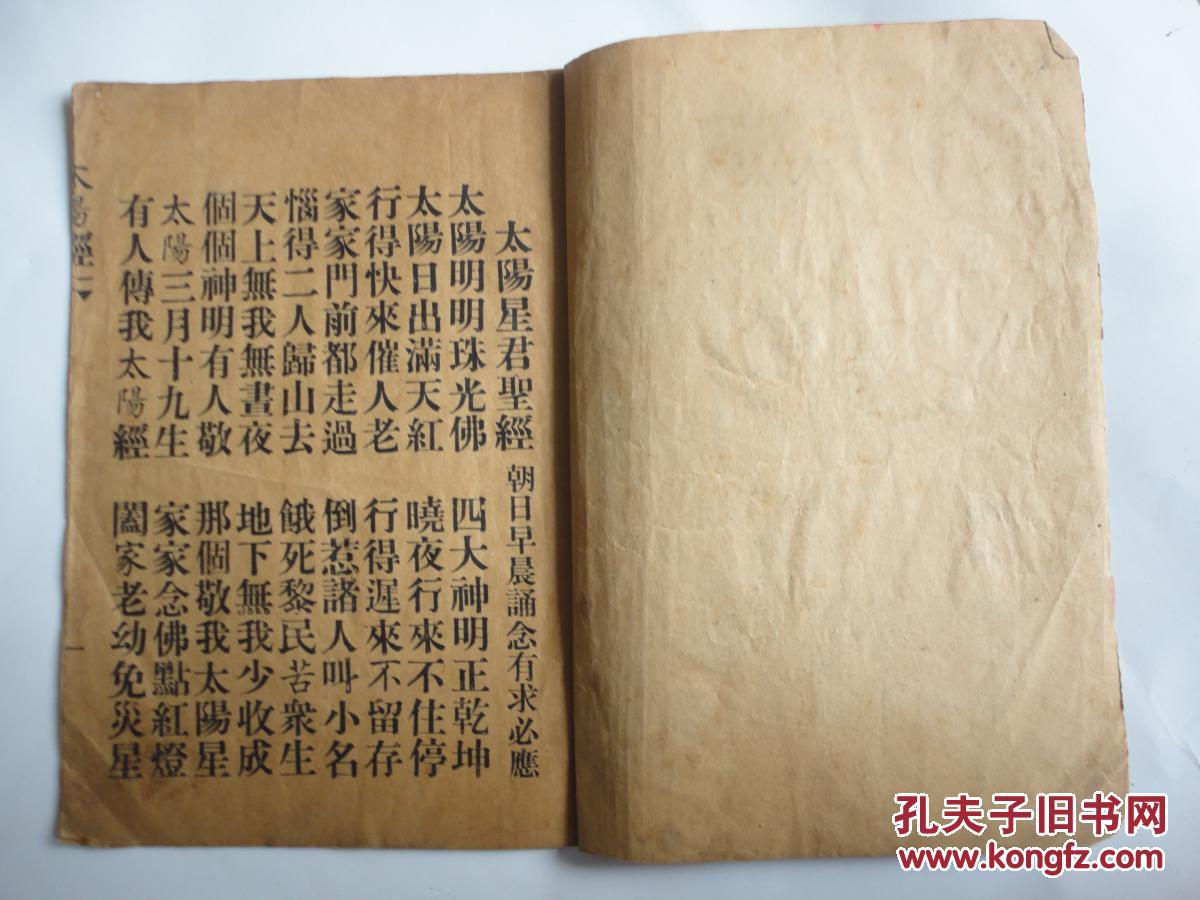 太陽星君聖經 朝日早晨誦念有求必應
太陽明明珠光佛 四大神明正乾坤
太陽日出滿天紅 曉夜行來不住停
行得快來催人老 行得遲來不留存
家家門前都走過 倒惹諸人叫小名
惱得二人歸山去 餓死黎民苦衆生
天上無我無晝夜 地下無我少收成
個個神明有人敬 那個敬我太陽星
太陽三月十九生 家家念佛點紅燈
有人傳我太陽經 闔家老幼免災星
太陽經 一
孔夫子旧书网
www.kongfz.com